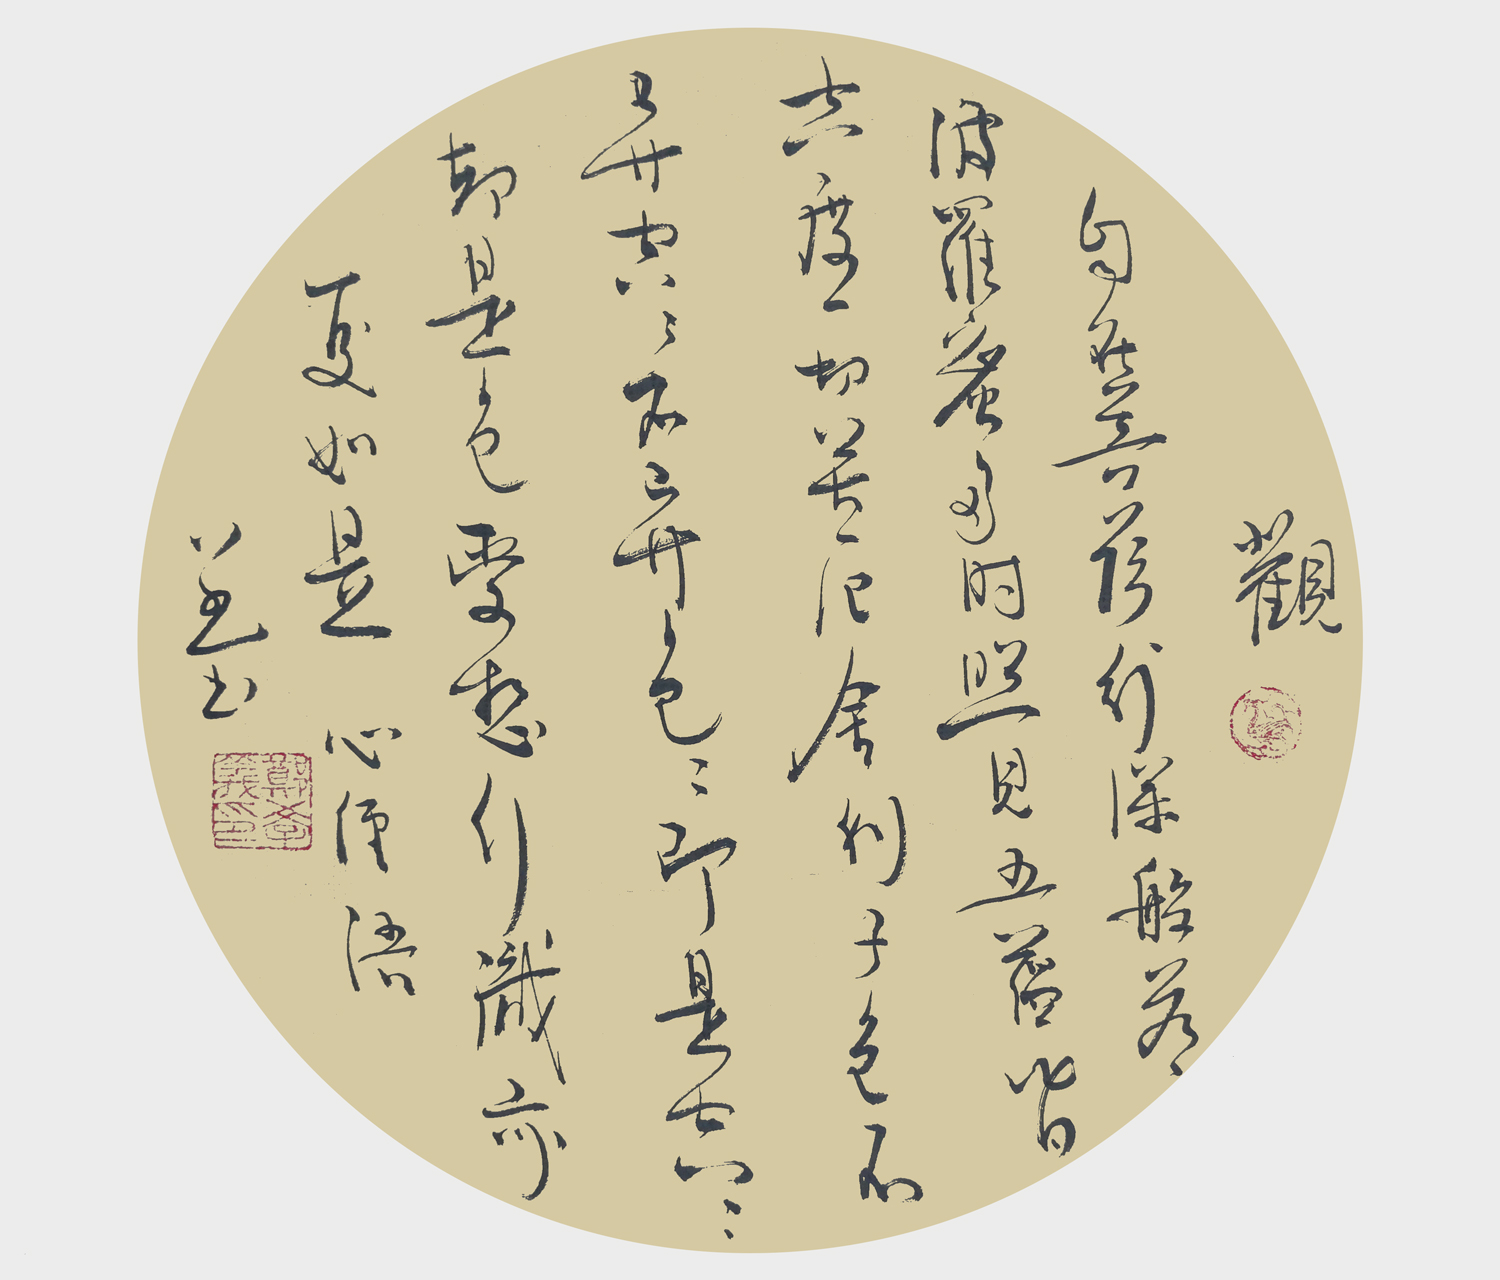 觀
自在菩薩行深般若
波羅蜜多时照見五蘊皆
空度一切苦厄舍利子色不
異空〻不異色〻即是空〻
即是色受想行識亦
復如是 心經語
義书